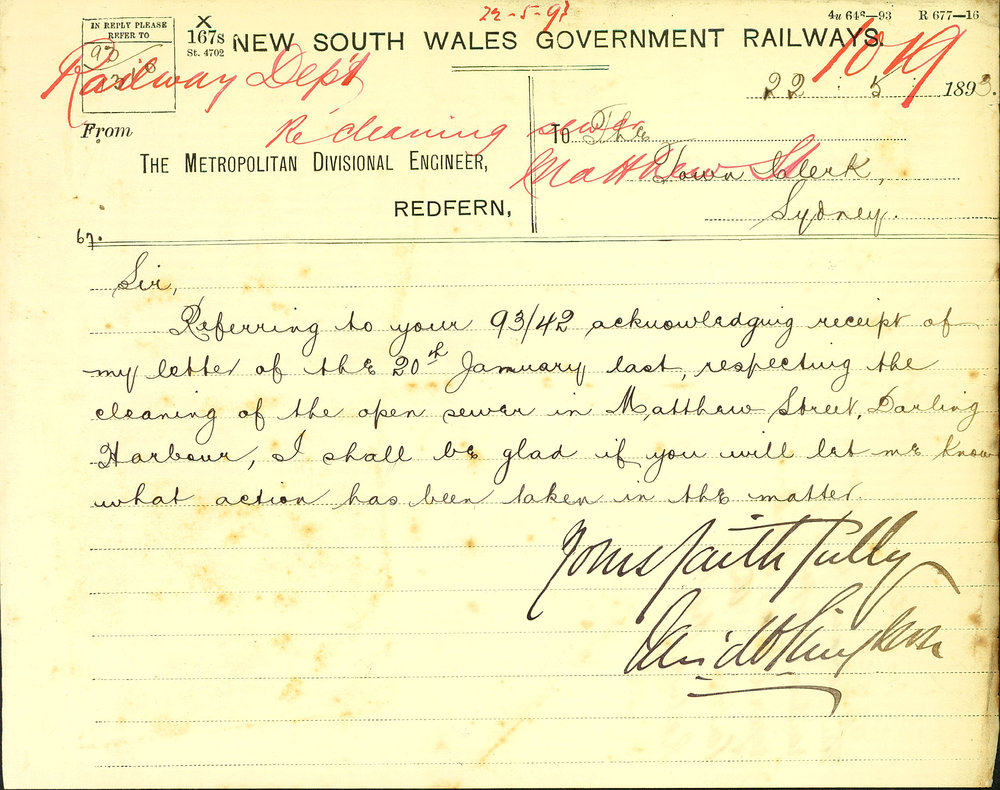 22-5-93
4u 648—93 R 677—16
IN REPLY PLEASE
REFER TO
93
X
167s
St. 4702
NEW SOUTH WALES GOVERNMENT RAILWAYS.
Railway Dept
1049
22 . 5 1893.
From
Re cleaning sewer
Matthew St
THE METROPOLITAN DIVISIONAL ENGINEER,
REDFERN,
TO The
Town Clerk,
Sydney.
67.
Sir,
Referring to your 93/42 acknowledging receipt of
my letter of the 20th January last, respecting the
cleaning of the open sewer in Matthew Street, Darling
Harbour, I shall be glad if you will let me know
what action has been taken in the matter.
Yours faithfully